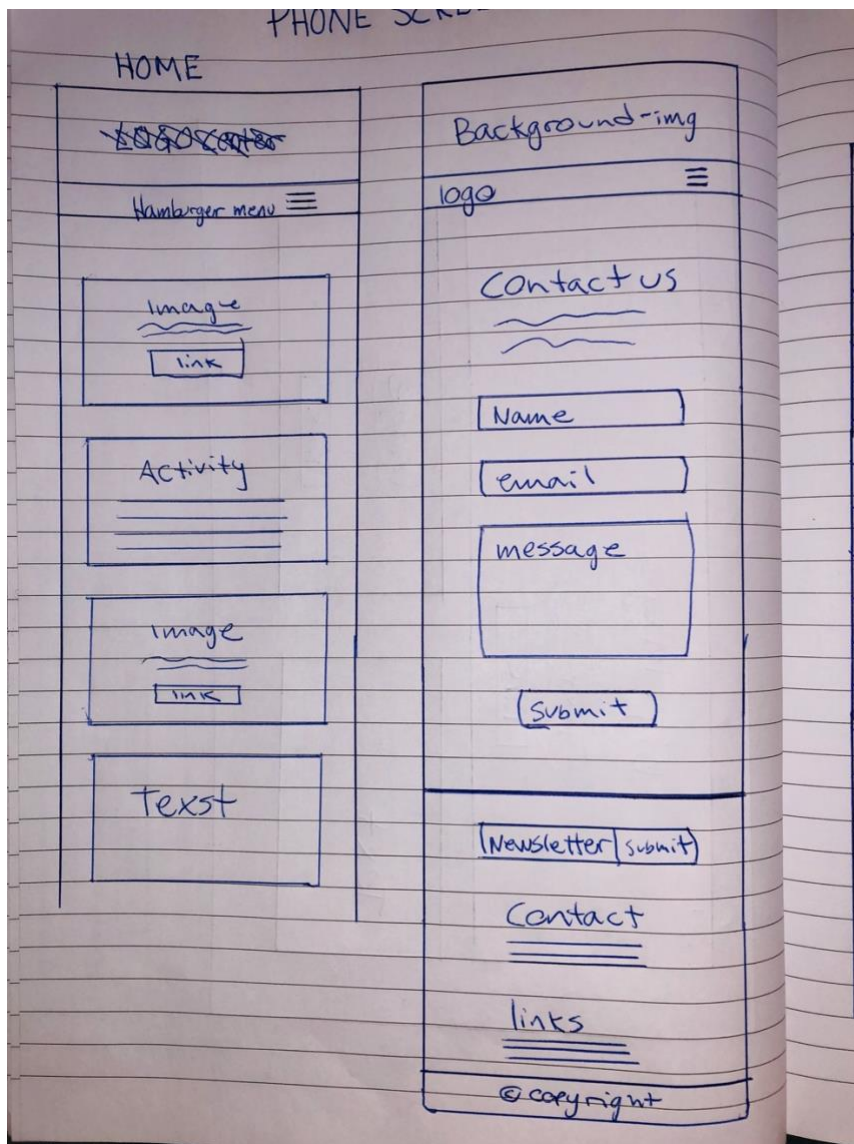 PHONE
HOME
Hamburger menu
Image
link
Activity
image
link
Texst
Background-img
logo
Contact us
Name
email
message
Submit
Newsletter submit
Contact
links
© copyright